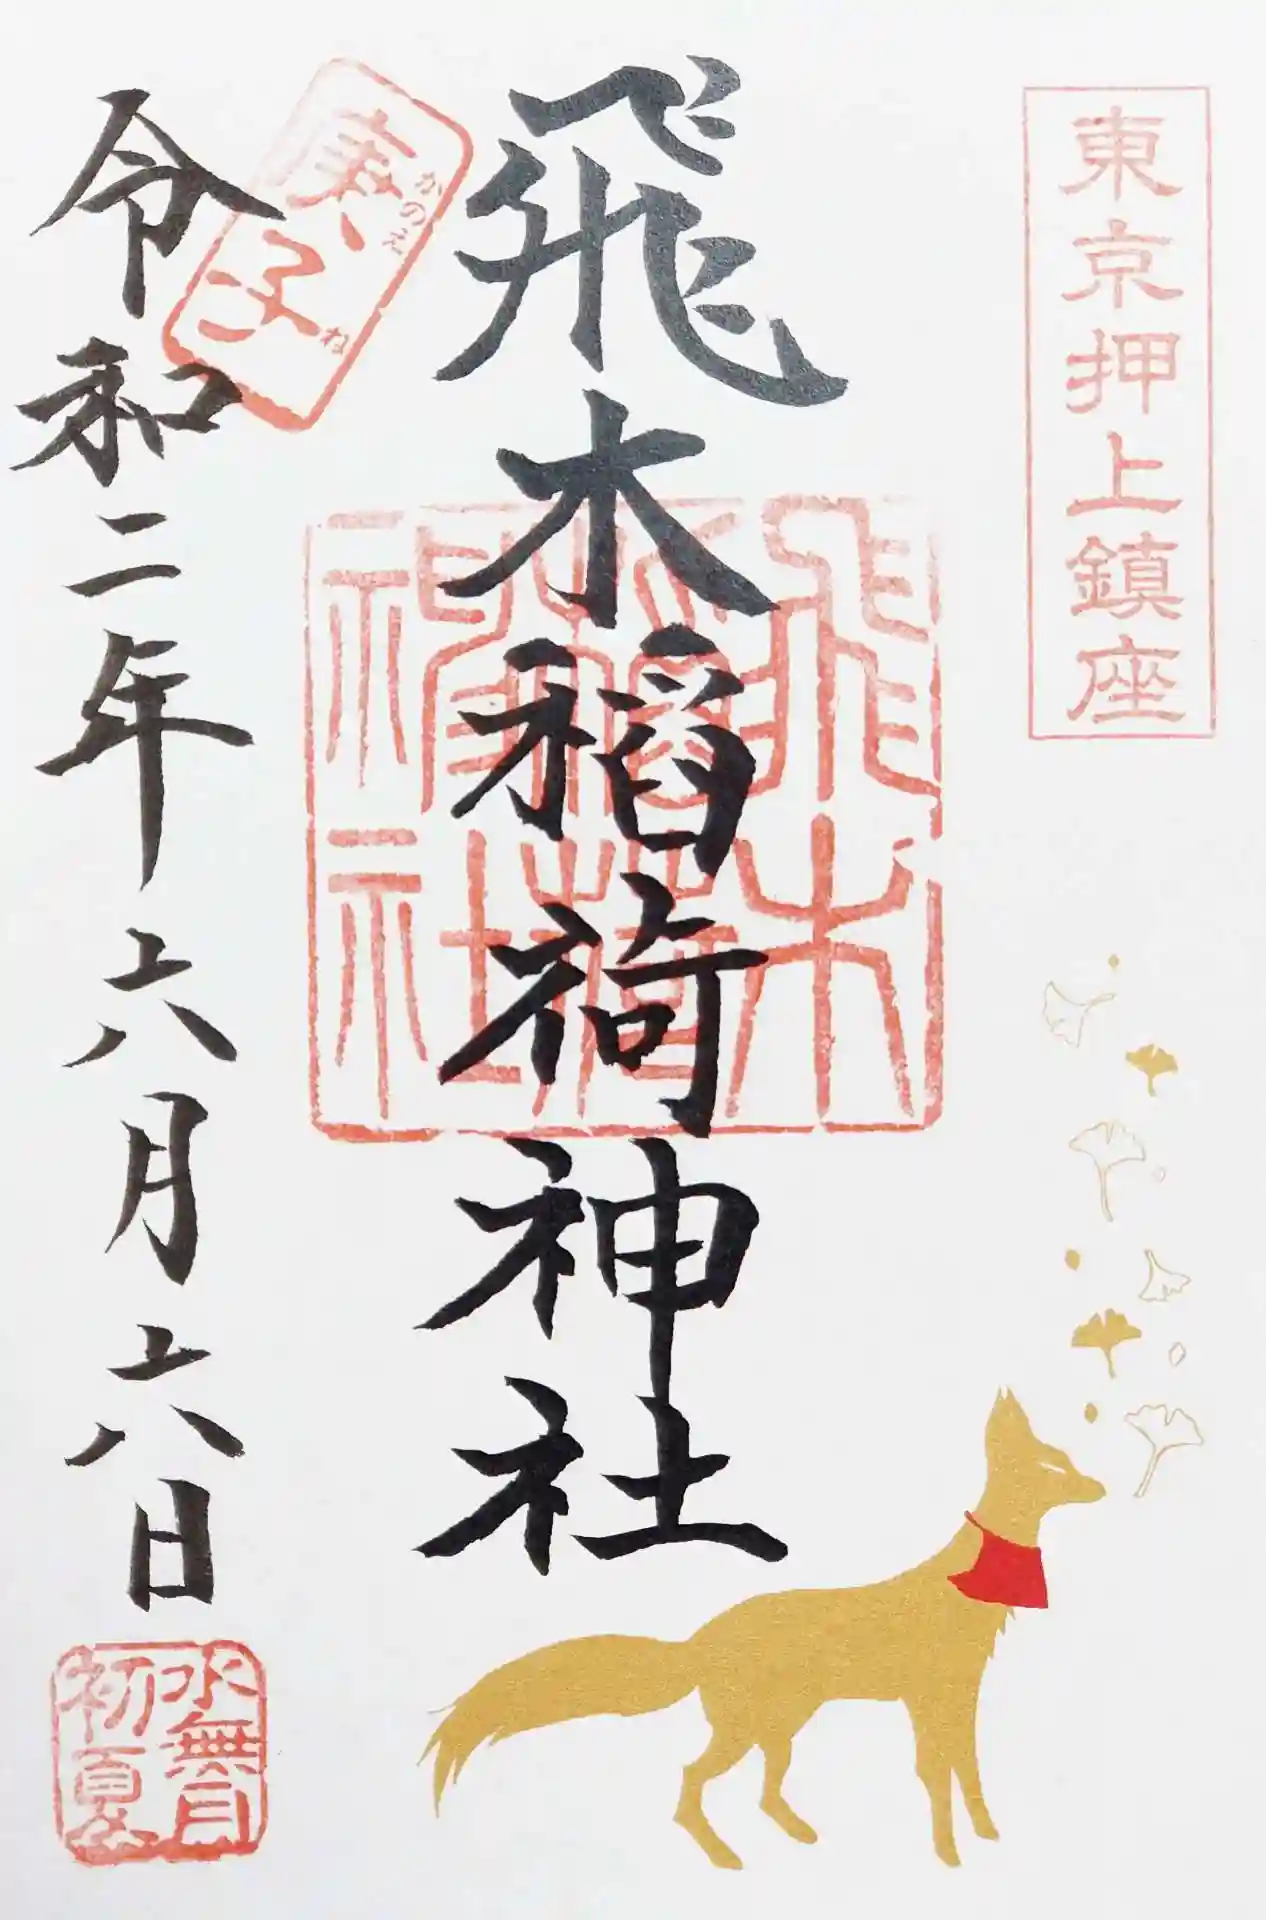 東京押上鎮座
飛木稲荷神社
飛木
稲荷
神社
庚子
かのえ
ね
令和二年六月六日
水無月
初夏